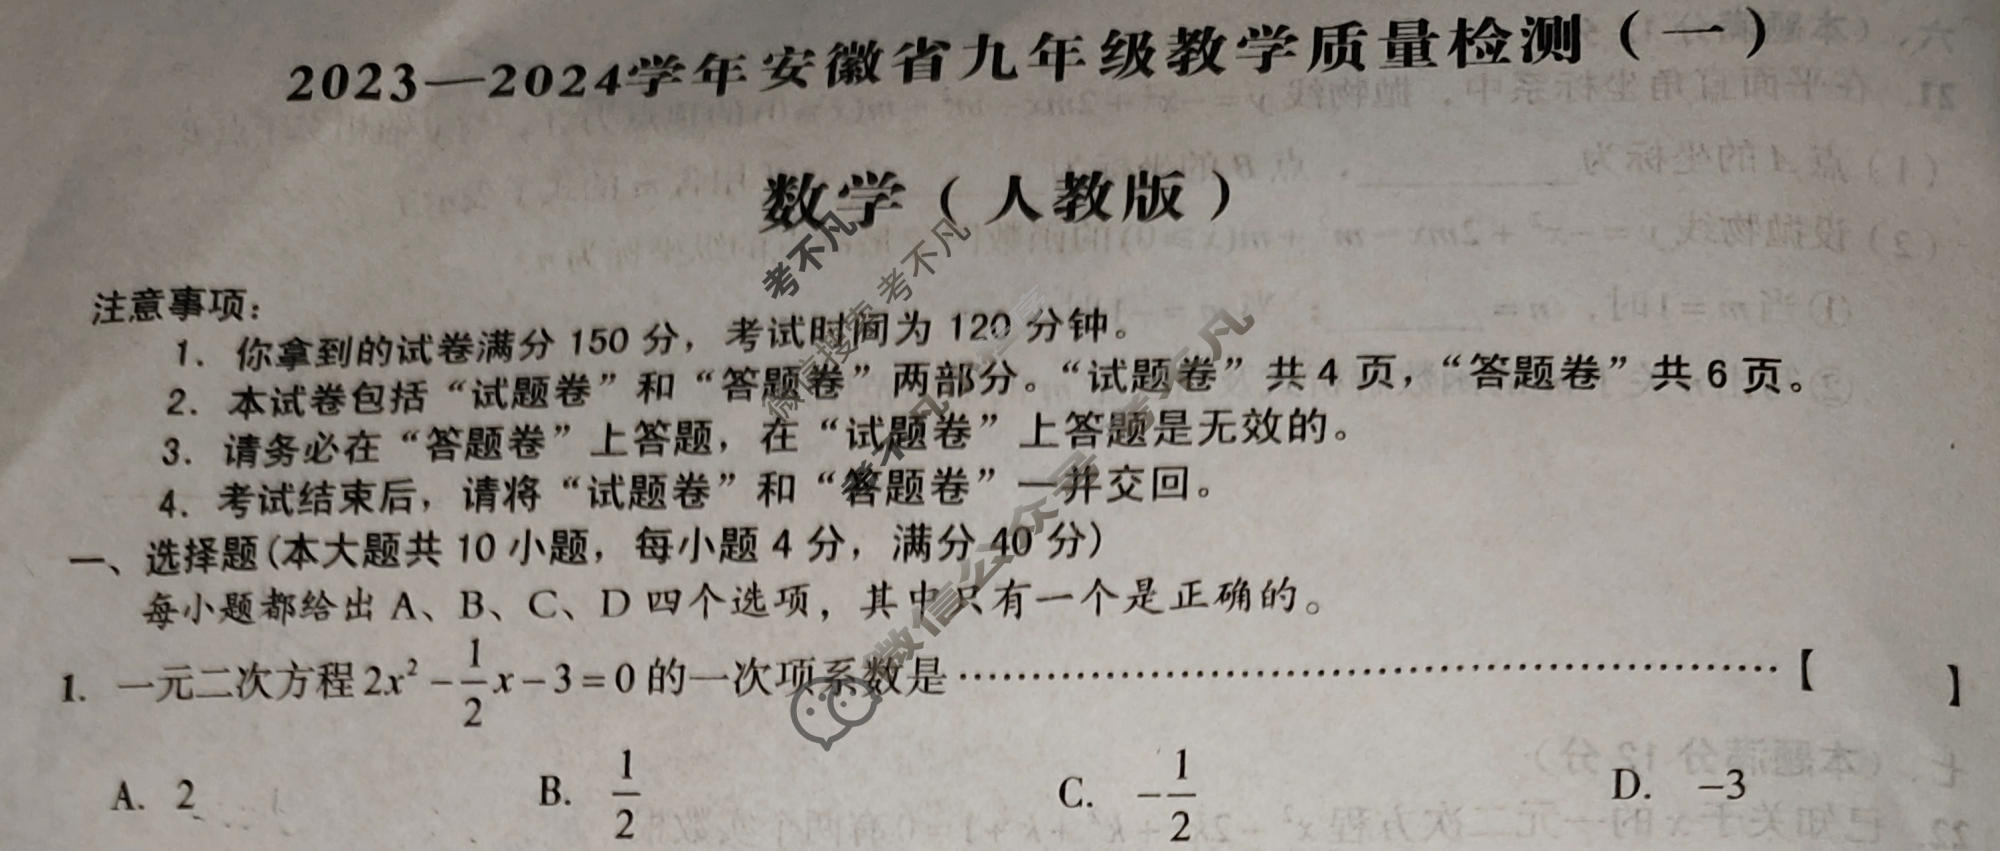 2023—2024学年安徽省九年级教学质量检测（一）
数学（人教版）
注意事项：
1. 你拿到的试卷满分 150 分，考试时间为 120 分钟。
2. 本试卷包括“试题卷”和“答题卷”两部分。“试题卷”共 4 页，“答题卷”共 6 页。
3. 请务必在“答题卷”上答题，在“试题卷”上答题是无效的。
4. 考试结束后，请将“试题卷”和“答题卷”一并交回。
一、选择题(本大题共 10 小题，每小题 4 分，满分 40 分)
每小题都给出 A、B、C、D 四个选项，其中只有一个是正确的。
1. 一元二次方程 2x² − 1/2 x − 3 = 0 的一次项系数是 ……………………………………【 】
A. 2 B. 1/2 C. −1/2 D. −3